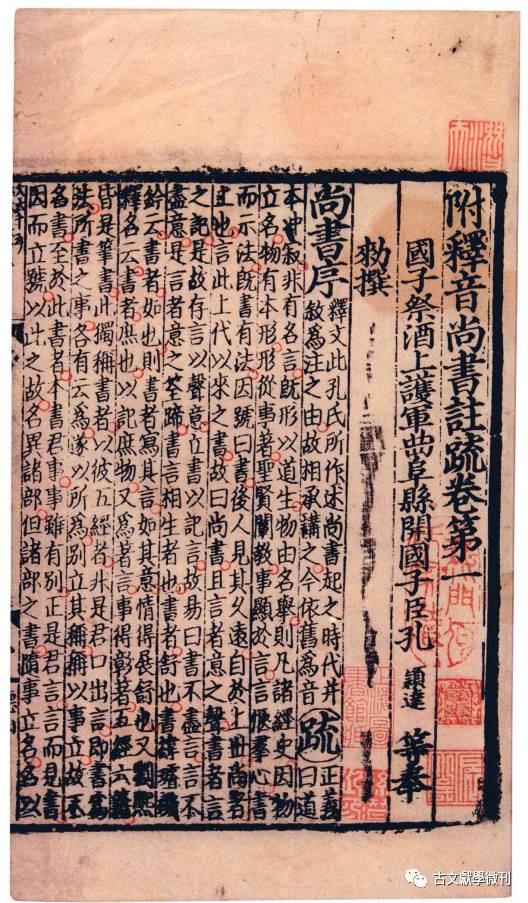 附釋音尚書註䟽卷第一
國子祭酒上護軍曲阜縣開國子臣孔 穎達 等奉
勑撰
尚書序 釋文此孔氏所作述尚書起之時代并
敘爲注之由故相承講之今依舊爲音 疏 正義
曰道
本冲寂非有名言旣形以道生物由名舉則凡諸經史因物
立名物有本形形從事著聖賢闡教事顯於言言愜羣心書
而示法旣書有法因號曰書後人見其久遠自於上世尚者
上也言此上代以來之書故曰尚書且言者意之聲書者言
之記是故存言以聲意立書以記言故易曰書不盡言言不
盡意是言者意之筌蹄書言相生者也書者舒也書緯璿璣
鈐云書者如也則書者寫其言如其意情得展舒也又劉熙
釋名云書者庶也以記庶物又爲著言事得彰著五經六籍
皆是筆書此獨稱書者以彼五經者非是君口出言即書爲
法所書之事各有云爲遂以所爲別立其稱稱以事立故不
名書至於此書者本書君事事雖有別正是君言言而見書
因而立號以此之故名異諸部但諸部之書隨事立名名以
古文獻學微刊